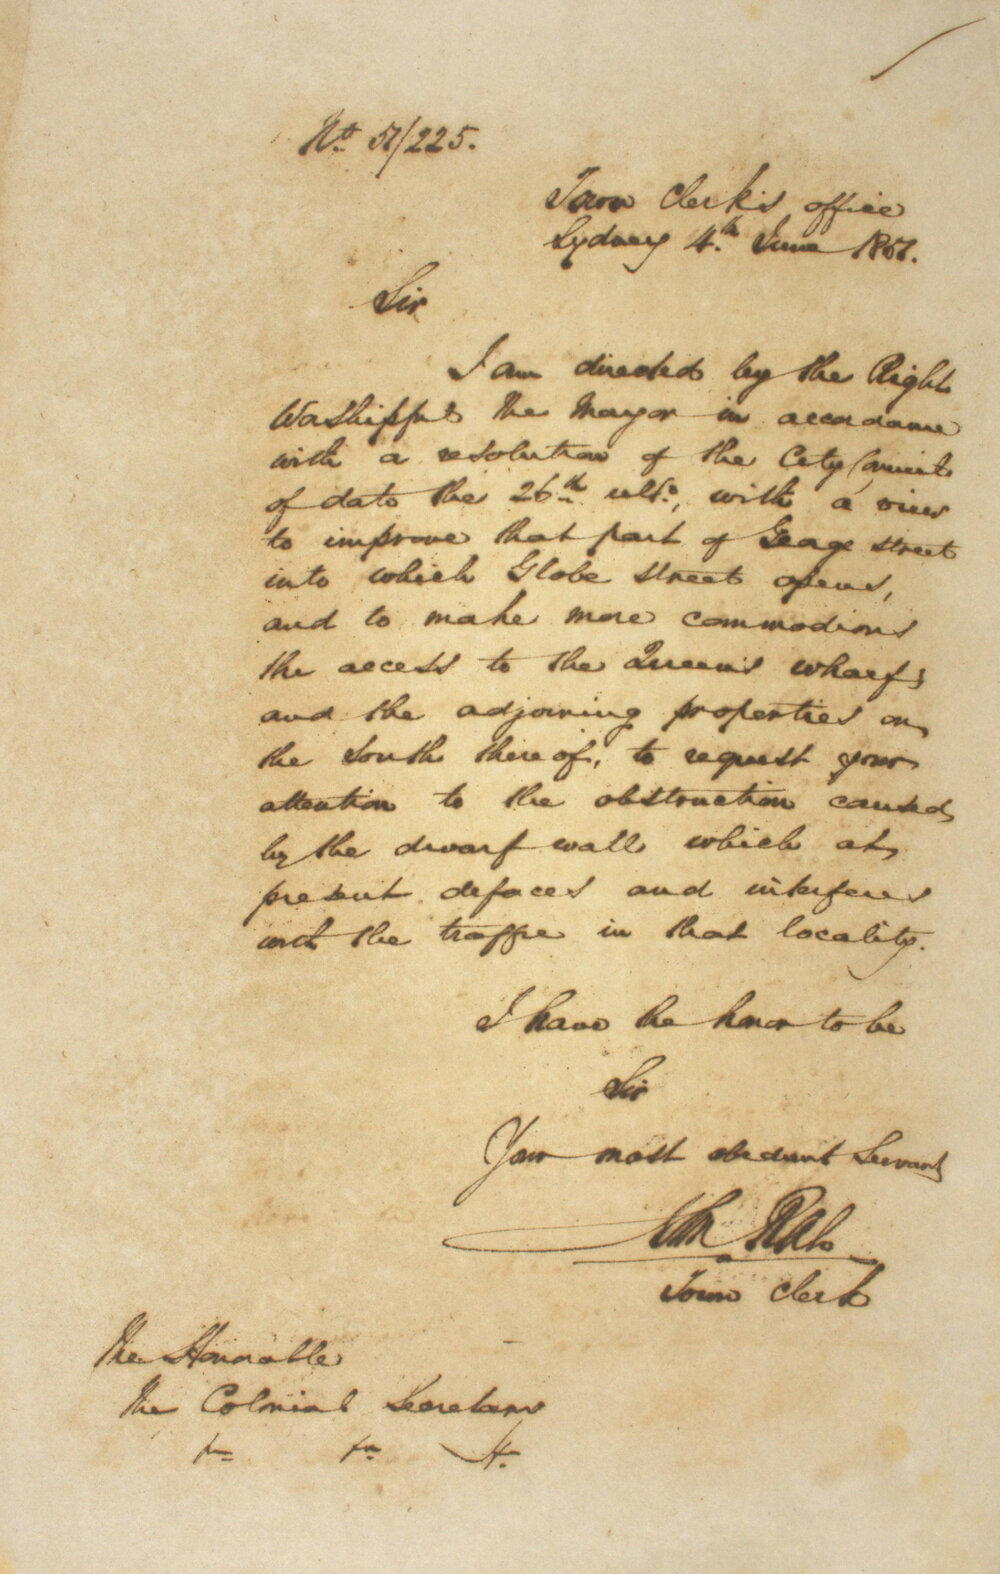 No. 57/225.
Town Clerk's office
Sydney 4th June 1857.
Sir
I am directed by the Right
Worshipful the Mayor in accordance
with a resolution of the City Council
of date the 26th ulto, with a view
to improve that part of George street
into which Globe street opens,
and to make more commodious
the access to the Queen's wharf,
and the adjoining properties on
the South thereof, to request your
attention to the obstruction caused
by the dwarf wall which at
present defaces and interferes
with the traffic in that locality.
I have the honor to be
Sir
Your most obedient Servant
John Rae
Town Clerk
The Honorable
The Colonial Secretary